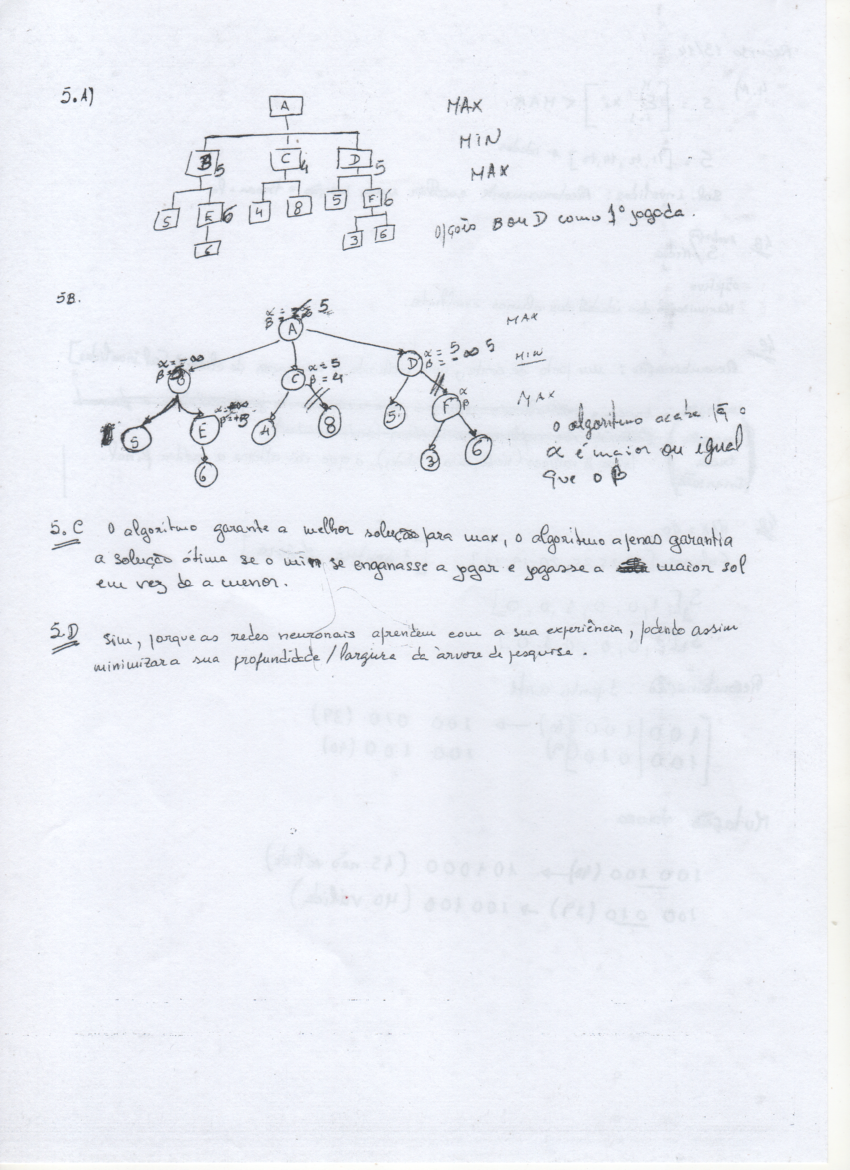 5.A)
A
MAX
MIN
B 5 C 4 D 5
MAX
5 E 6 4 8 5 F 6
6 3 6
Opções B ou D como 1º jogada.
5B.
α = 5
β =
A
MAX
α = -∞
β =
C α = 5
β = 4
D α = 5
β = -∞ 5
MIN
MAX
5 E 4 8 5 F α
β
6 3 6
O algoritmo acaba
α é maior ou igual
que o β
5.C O algoritmo garante a melhor solução pra max, o algoritmo apenas garantia
a solução ótima se o min se enganasse a jogar e jogasse a maior sol
em vez de a menor.
5.D Sim, porque as redes neuronais aprendem com a sua experiência, podendo assim
minimizar a sua profundidade/largura da àrvore de pesquisa.